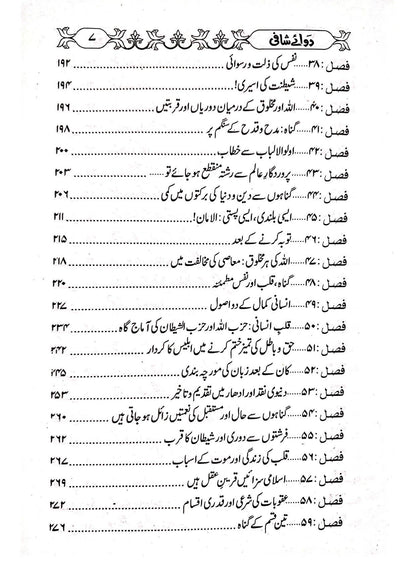 دوائے شافی
۷
فصل: ۳۸......نفس کی ذلت و رسوائی ........ ۱۹۲
فصل: ۳۹......شیطنت کی اسیری! ........ ۱۹۴
فصل: ۴۰......اللہ اور مخلوق کے درمیان دوریاں اور قربتیں ........ ۱۹۶
فصل: ۴۱......گناہ: مدح و قدح کے سنگم پر ........ ۱۹۸
فصل: ۴۲......اولوالالباب سے خطاب ........ ۲۰۰
فصل: ۴۳......پروردگار عالم سے رشتہ منقطع ہو جائے تو ........ ۲۰۳
فصل: ۴۴......گناہوں سے دین و دنیا کی برکتوں میں کمی ........ ۲۰۶
فصل: ۴۵......ایسی بلندی، ایسی پستی: الامان! ........ ۲۱۱
فصل: ۴۶......توبہ کرنے کے بعد ........ ۲۱۵
فصل: ۴۷......اللہ کی ہر مخلوق: معاصی کی مخالفت میں ........ ۲۱۸
فصل: ۴۸......گناہ، قلب اور نفس مطمئنہ ........ ۲۲۰
فصل: ۴۹......انسانی کمال کے دو اصول ........ ۲۲۷
فصل: ۵۰......قلبِ انسانی: حزب اللہ اور حزب الشیطان کی آماج گاہ ........ ۲۳۴
فصل: ۵۱......حق و باطل کی تمیز ختم کرنے میں ابلیس کا کردار ........ ۲۴۲
فصل: ۵۲......کان کے بعد زبان کی مورچہ بندی ........ ۲۴۵
فصل: ۵۳......دنیوی نقد اور ادھار میں تقدیم و تاخیر ........ ۲۵۳
فصل: ۵۴......گناہوں سے حال اور مستقبل کی نعمتیں زائل ہو جاتی ہیں ........ ۲۶۰
فصل: ۵۵......فرشتوں سے دوری اور شیطان کا قرب ........ ۲۶۲
فصل: ۵۶......قلب کی زندگی اور موت کے اسباب ........ ۲۶۷
فصل: ۵۷......اسلامی سزائیں قرینِ عقل ہیں ........ ۲۶۹
فصل: ۵۸......عقوبات کی شرعی اور قدری اقسام ........ ۲۷۲
فصل: ۵۹......تین قسم کے گناہ ........ ۲۷۶